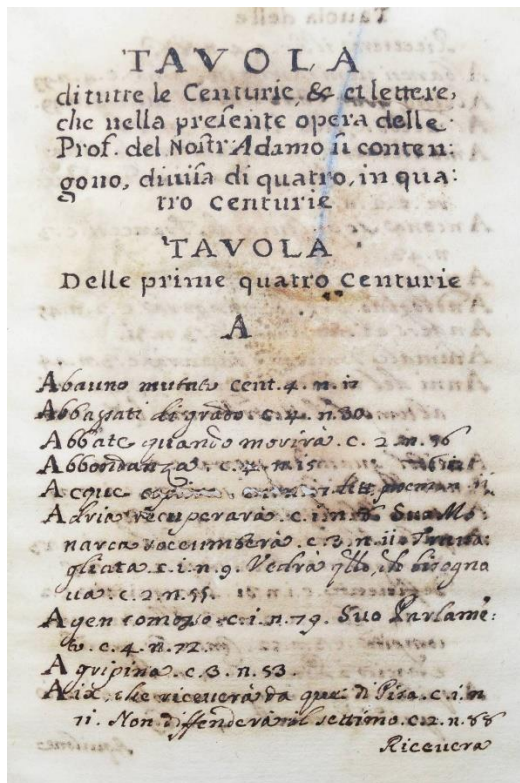 TAVOLA
di tutte le Centurie, & et lettere,
che nella presente opera delle
Prof. del Nostr Adamo si conten:
gono, divisa di quatro, in qua:
tro Centurie
TAVOLA
Delle prime quatro Centurie
A
Abauno mutato Cent. 4. n. 17
Abbassati di grado. c. 4. n. 30.
Abbate quando morirà. c. 2. n. 56
Abbondanza. c. 4. n. 15
Acque
Adria recuperarà. c. 1. n. 8. Suo Mo:
narca soccumberà. c. 3. n. 11. Trava:
gliata. c. 1. n. 9. Vedrà qllo, ch bisogna
va. c. 2. n. 55.
Agen comosso. c. 1. n. 79. Suo Parlame:
to. c. 4. n. 72.
Agripina. c. 3. n. 53.
Aix, che riceverà da que di Pisa. c. 1. n
71. Non diffenderà il settimo. c. 2. n. 88
Ricevera